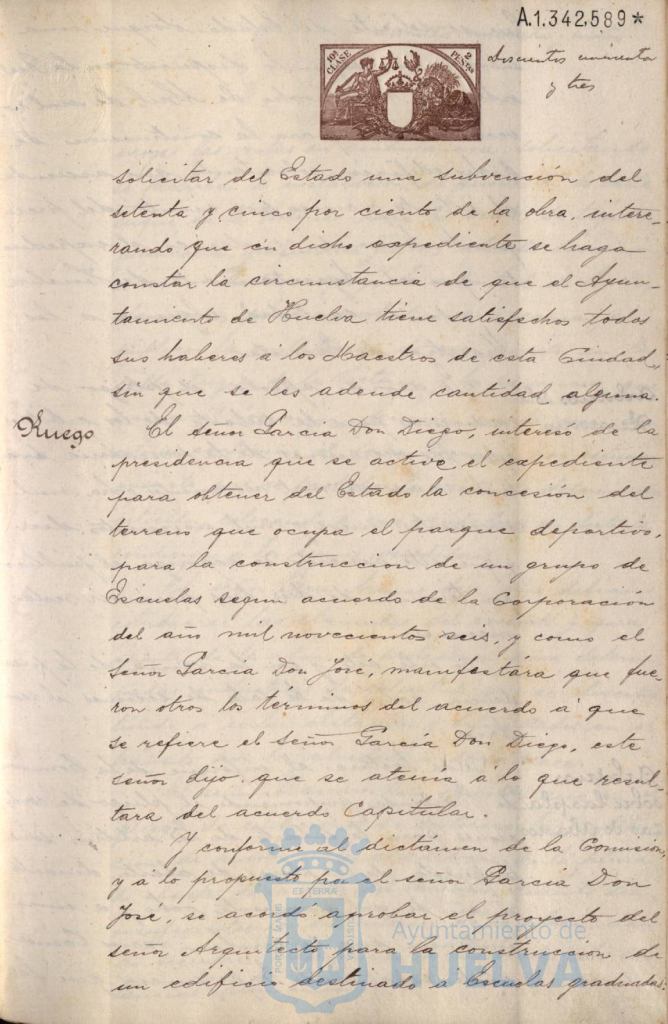 A.1.342,589*
10ª CLASE
2 PESETAS
Doscientos cincuenta
y tres
solicitar del Estado una subvención del
setenta y cinco por ciento de la obra, intere-
rando que en dicho expediente se haga
constar la circunstancia de que el Ayun-
tamiento de Huelva tiene satisfechos todos
sus haberes á los Maestros de esta Ciudad,
sin que se les adeude cantidad alguna.
Ruego
El señor Garcia Don Diego, interesó de la
presidencia que se active el expediente
para obtener del Estado la concesión del
terreno que ocupa el parque deportivo,
para la construccion de un grupo de
Escuelas segun acuerdo de la Corporación
del año mil novecientos seis, y como el
señor Garcia Don José, manifestára que fue-
ron otros los términos del acuerdo á que
se refiere el señor Garcia Don Diego, este
señor dijo que se atenia á lo que resul-
tara del acuerdo Capitular.
Y conforme al dictámen de la Comision,
y á lo propuesto por el señor Garcia Don
José, se acordó aprobar el proyecto del
señor Arquitecto para la construccion de
un edificio destinado á Escuelas graduadas
Ayuntamiento de
HUELVA